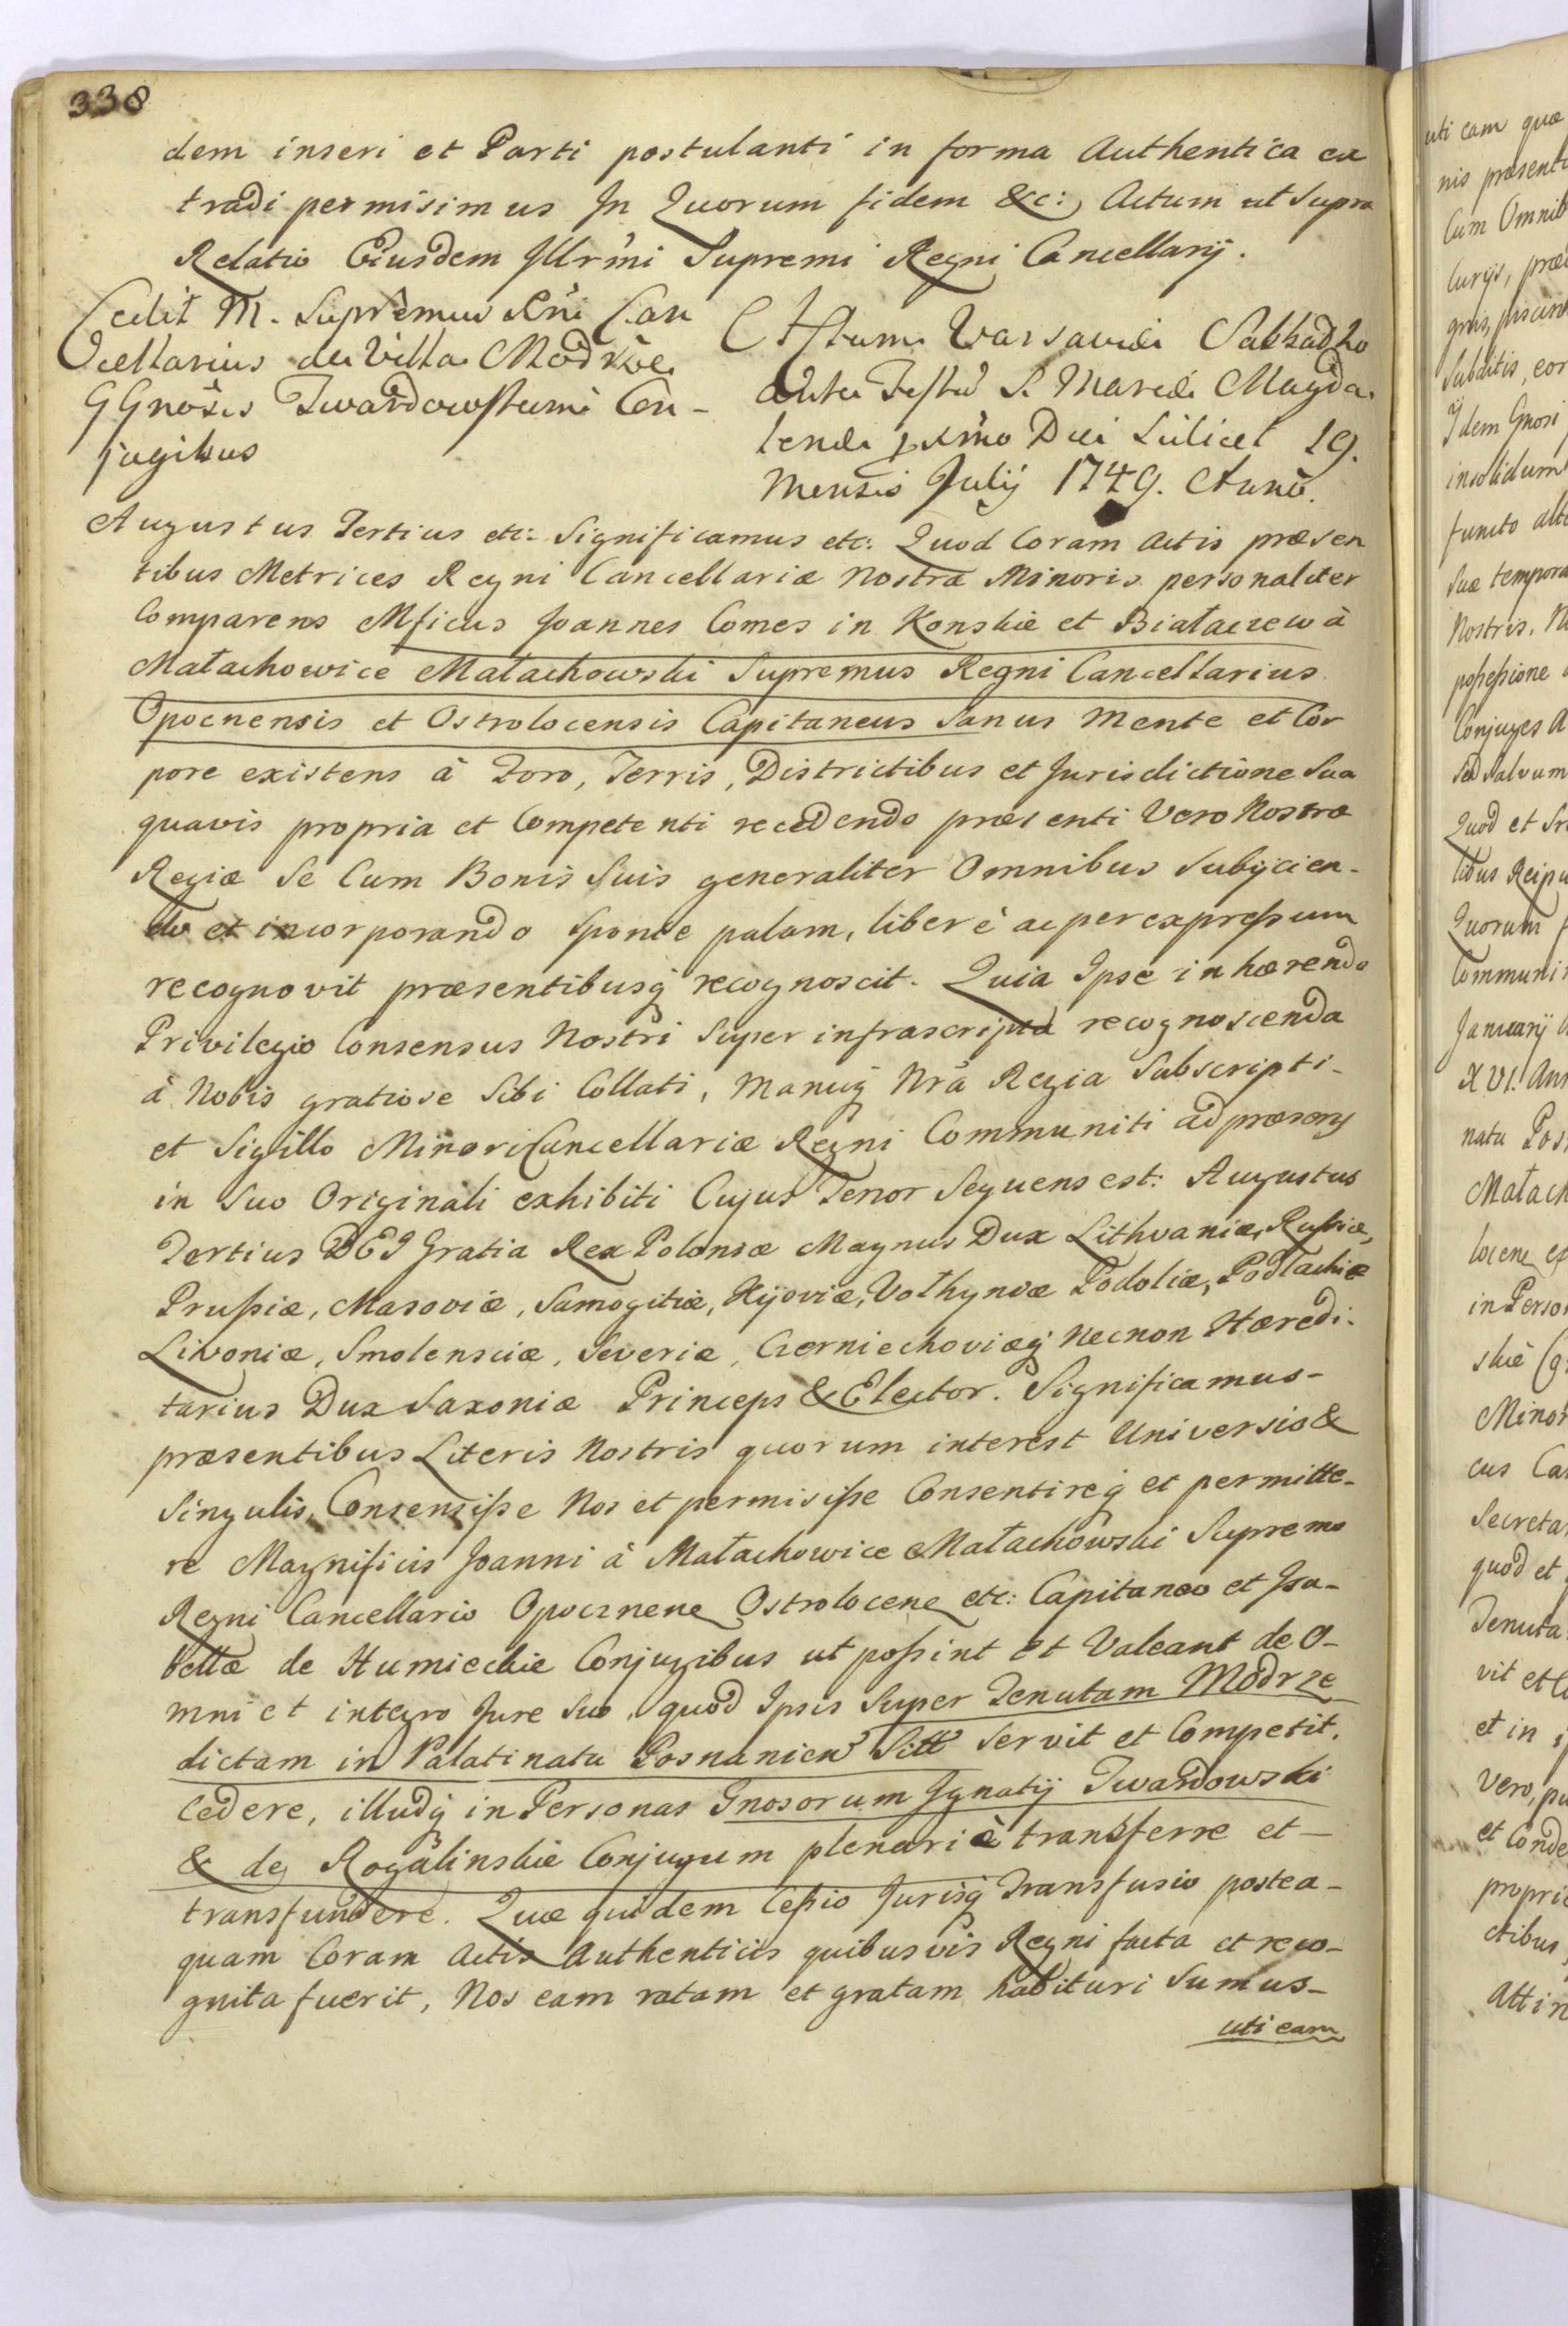 338
dem inseri et Parti postulanti in forma Authentica ex
tradi permisimus In Quorum fidem &c: Actum ut Supra
Relatio Eiusdem Illrmi Supremi Regni Cancellarij.
Cedit M. Supremus Rni Can
cellarius de Villa Modrze
GGnosis Twardowskimi Con-
jugibus
Actum Varsaviæ Sabbatho
Ante Festum S. Mariæ Magda
lenæ pxmo Die Scilicet 19.
Mensis Julij 1749. Anno.
Augustus Tertius etc: Significamus etc: Quod Coram Actis præsen
tibus Metrices Regni Cancellariæ Nostræ Minoris personaliter
Comparens Mficus Joannes Comes in Konskie et Białaczew à
Małachowice Małachowski Supremus Regni Cancellarius
Opocnensis et Ostrolocensis Capitaneus Sanus Mente et Cor
pore existens à Foro, Terris, Districtibus et Jurisdictione Sua
quavis propria et Competenti recedendo præsenti Vero Nostræ
Regiæ Se Cum Bonis Suis generaliter Omnibus Subijcien-
do et incorporando Sponte palam, liberè ac per expressum
recognovit præsentibusq recognoscit. Quia Ipse inhærendo
Privilegio Consensus Nostri Super infrascripta recognoscenda
à Nobis gratiose Sibi Collati, Manuq Nrâ Regia Subscripti-
et Sigillo Minori Cancellariæ Regni Communiti ad præsens
in Suo Originali exhibiti Cujus Tenor Sequens est: Augustus
Tertius DEI Gratia Rex Poloniæ Magnus Dux Lithvaniæ, Russiæ,
Prussiæ, Masoviæ, Samogitiæ, Kijoviæ, Volhyniæ Podoliæ, Podlachiæ
Livoniæ, Smolensciæ, Severiæ, Czerniechoviæq Necnon Hæredi-
tarius Dux Saxoniæ Princeps & Elector. Significamus-
præsentibus Literis Nostris quorum interest Universis &
Singulis, Consensisse Nos et permisisse Consentireq et permitte-
re Magnificis Joanni à Małachowice Małachowski Supremo
Regni Cancellario Opocznen Ostrolocen etc: Capitaneo et Isa-
bellæ de Humieckie Conjugibus ut possint et Valeant de O-
mni et integro Jure Suo, quod Ipsis Super Tenutam Modrze
dictam in Palatinatu Posnanien Sitt Servit et Competit,
Cedere, illudq in Personas Gnosorum Ignatij Twardowski
& de Rogalinskie Conjugum plenariè transferre et-
transfundere. Quæ quidem Cessio Jurisq Transfusio postea-
quam Coram Actis Authenticis quibusvis Regni facta et reco-
gnita fuerit, Nos eam ratam et gratam habituri Sumus-
uti eam
uti eam quæ
nis præsenti
Cum Omnib
Subditis, cor
Idem Gnosi
insolidum
functo alte
Suæ tempora
Nostris. N
possessione
Conjuges A
Sed salvum
Quod et Sr
Quorum
Communi
Januarij
XVI. Ann
natu Pos
Małach
locen
in Perso
skie
Minor
cus Ca
Secreta
quod et
Tenuta
vit et
et in
Vero, pu
et Conde
propri
ctibus
Attin